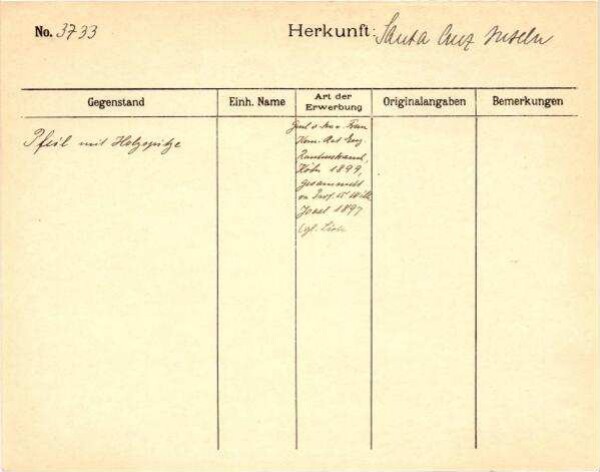 No. 3733
Herkunft: Santa Cruz Inseln
Gegenstand
Einh. Name
Art der
Erwerbung
Originalangaben
Bemerkungen
Pfeil mit Holzspitze
Frau
Rautenstrauch,
Köln 1899,
gesammelt
v. Prof. Dr. Wilh.
Joest 1897